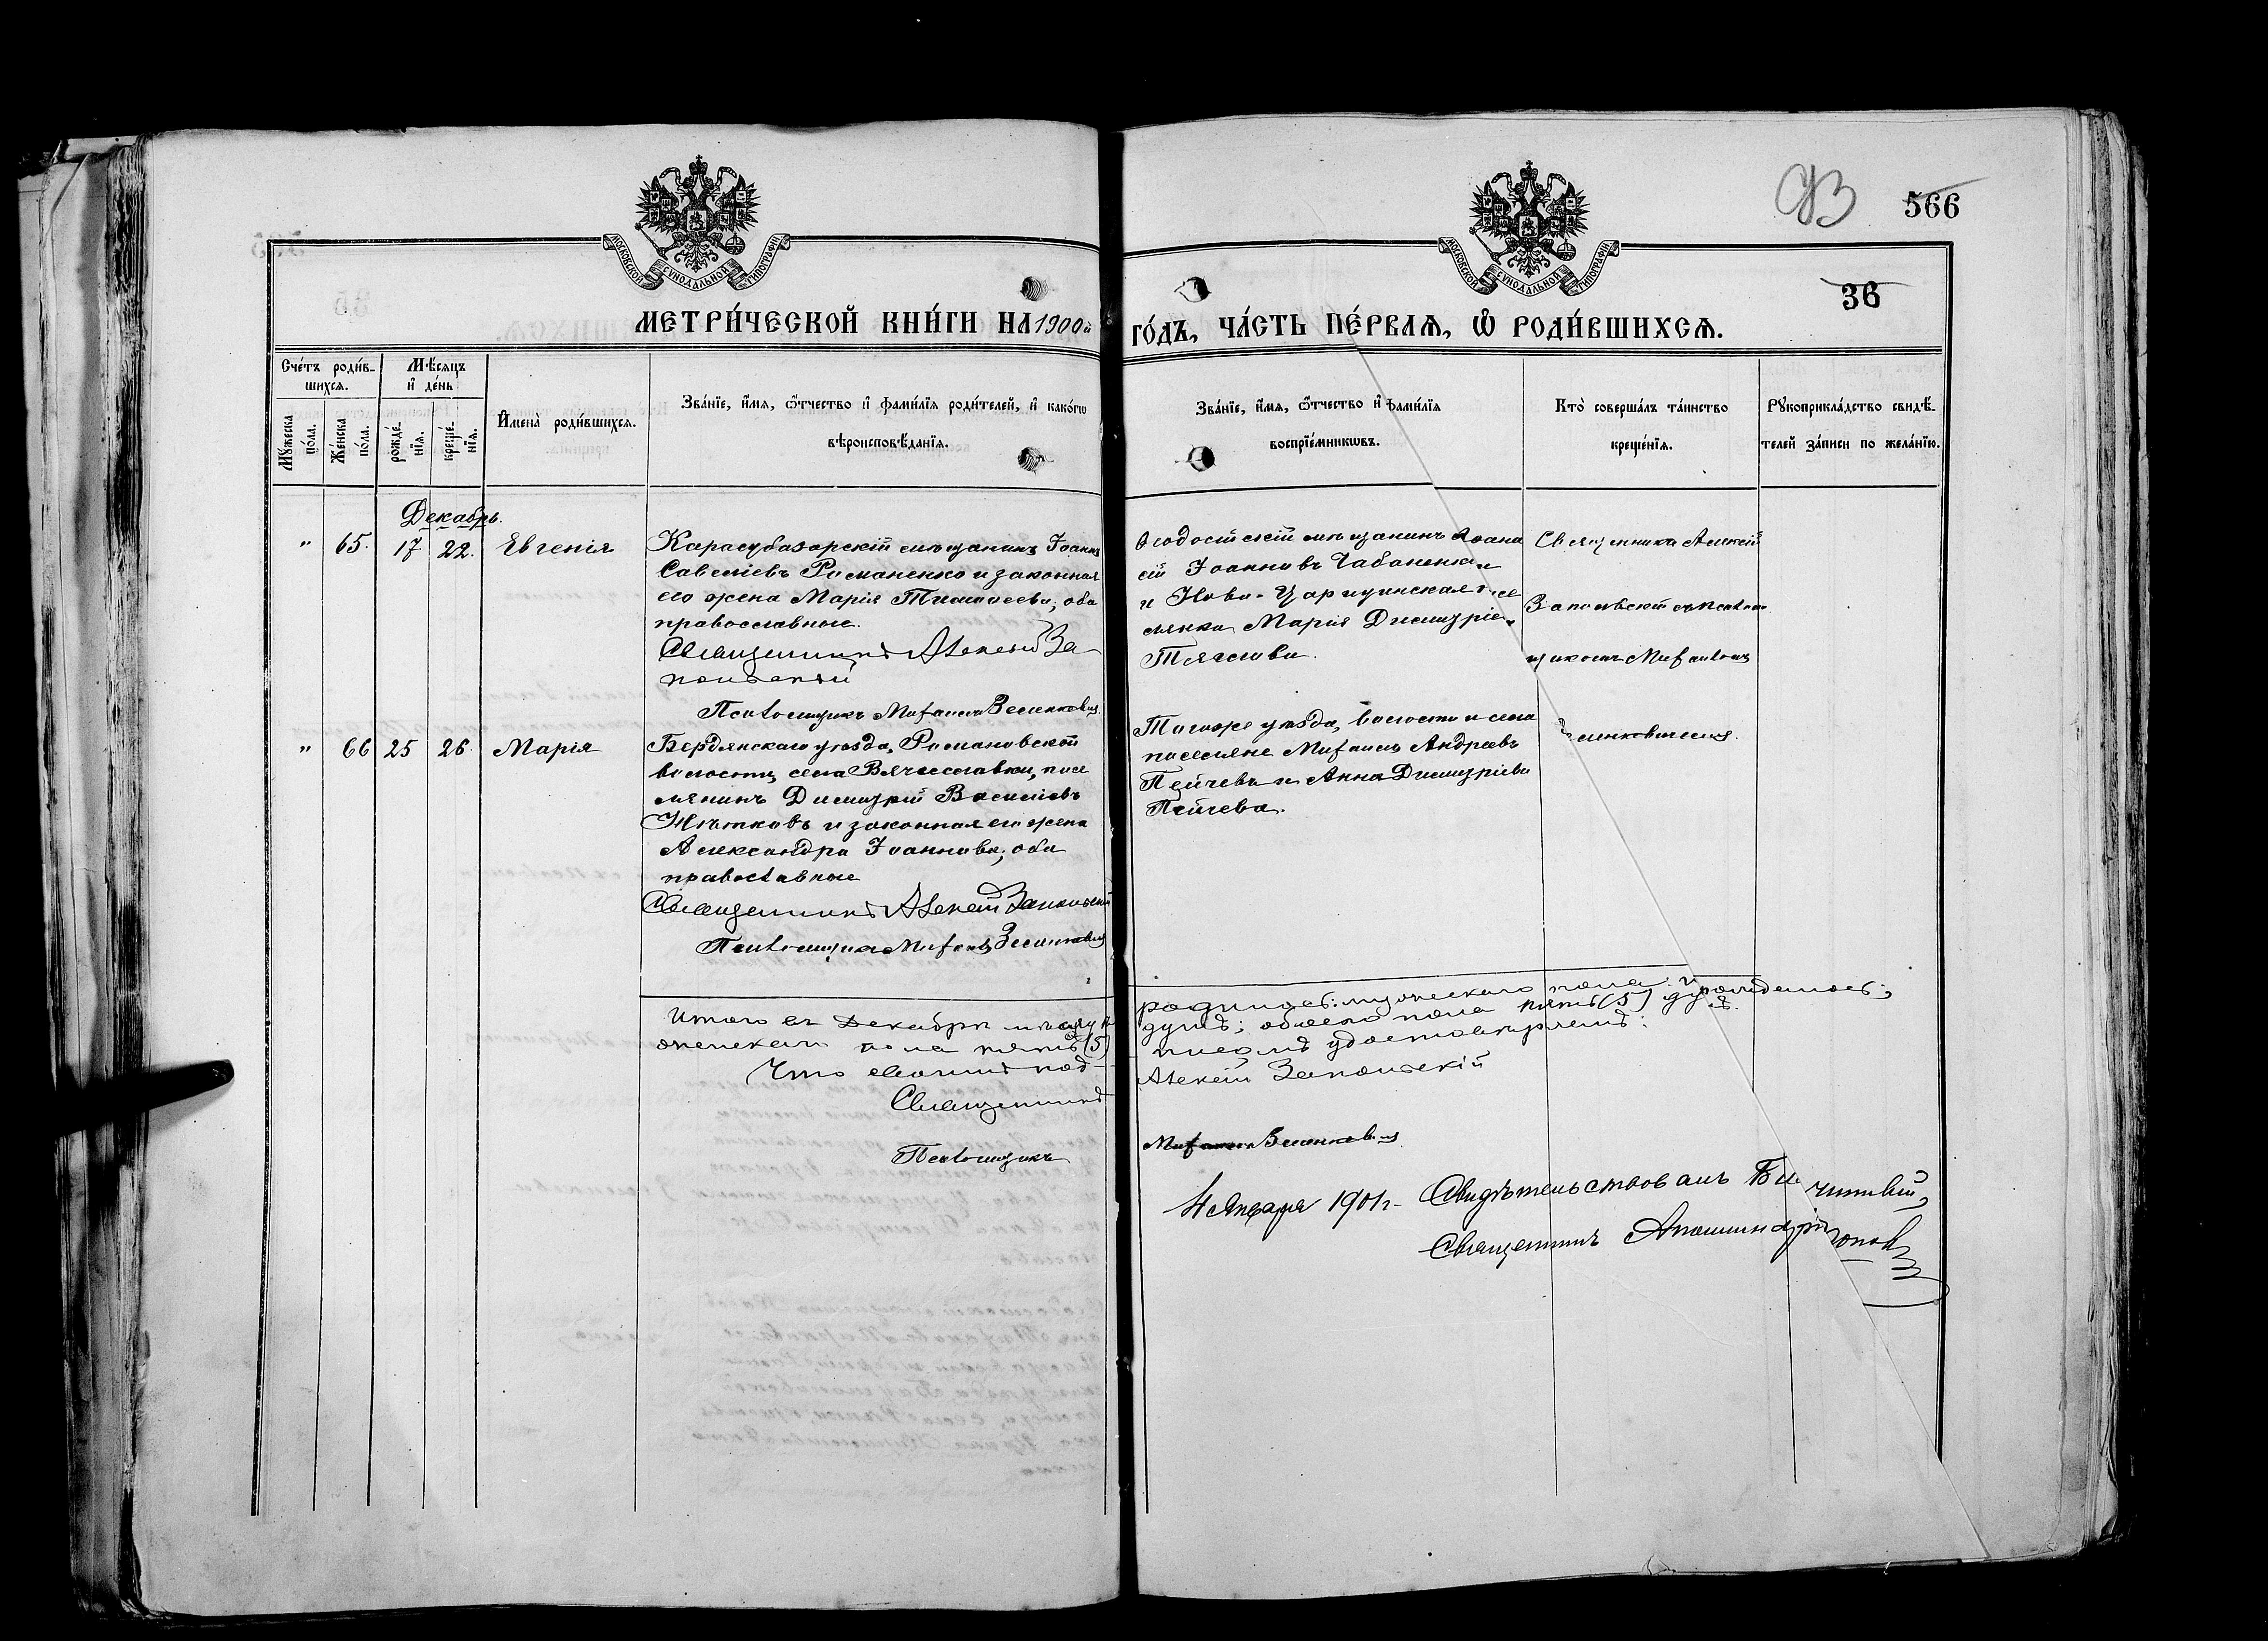 МОСКОВСКОЙ СѴНОДАЛЬНОЙ ТИПОГРАФІИ
МОСКОВСКОЙ СѴНОДАЛЬНОЙ ТИПОГРАФІИ
93 566
36
МЕТРИ́ЧЕСКОЙ КНИ́ГИ НА 1900й
ГО́ДЪ, ЧА́СТЬ ПЕ́РВАѦ, Ѿ РОДИ́ВШИХСѦ.
Сче́тъ роди́в-
шихсѧ.
Мѣсѧцъ
и҆ де́нь
Мꙋ́жеска по́ла.
Же́нска по́ла.
рожде́-нїѧ.
креще́-нїѧ.
И҆мена̀ роди́вшихсѧ.
Зва́нїе, и҆́мѧ, ѻ҆́тчество и҆ фами́лїѧ роди́телей, и҆ како́гѡ
вѣроисповѣ́данїѧ.
Зва́нїе, и҆́мѧ, ѻ҆́тчество и҆ фами́лїѧ
воспрїе́мникѡвъ.
Кто̀ соверша́лъ та́инство
креще́нїѧ.
Рꙋкоприкла́дство свидѣ́-
телей за́писи по жела́нїю.
Декабрь.
" 65. 17 22. Евгенія
Карасубазарскій мѣщанинъ Іоаннъ
Савеліевъ Романенко и законная
его жена Марія Тимоѳеева; оба
православные.
Священникъ Алексій За-
польскій
Псаломщикъ Михаилъ
Ѳеодосійскій мѣщанинъ Аѳана
сій Іоанновъ Чабаненко
и Ново-Царицинская посе
лянка Марія Димитріева
Тяглова.
Священникъ Алексій
Запольскій съ псалом
щикомъ Михаиломъ
" 66 25 26. Марія
Бердянскаго уѣзда, Романовской
волости, села Вячеславки, посе
лянинъ Димитрій Василіевъ
Жѣтковъ и законная его жена
Александра Іоаннова; оба
православные
Священникъ Алексій Запольскій
Псаломщикъ Михаилъ
Того же уѣзда, волости и села
поселяне Михаилъ Андреевъ
Пейчевъ и Анна Димитріева
Пейчева.
Итого въ Декабрѣ мѣсяцѣ
родилось: мужескаго пола
женскаго пола пять (5)
душъ; обоего пола пять (5) душъ.
Что своимъ под-
писомъ удостовѣряемъ:
Священникъ Алексій Запольскій
Псаломщикъ Михаилъ
4 Января 1901 г. Свидѣтельствовалъ Благочинный,
Священникъ Аполлинарій Поповъ